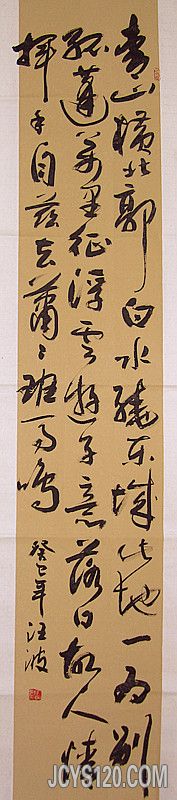 青山横北郭白水繞东城此地一为别
孤蓬万里征浮云遊子意落日故人情
揮手自兹去萧々班马鸣
癸巳年汪波
JCYS120.COM